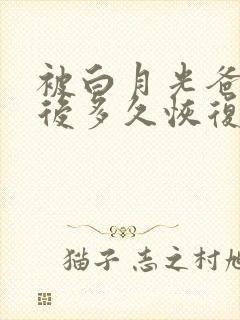 被白月光爸
後多久恢復
猫子 志之村旭